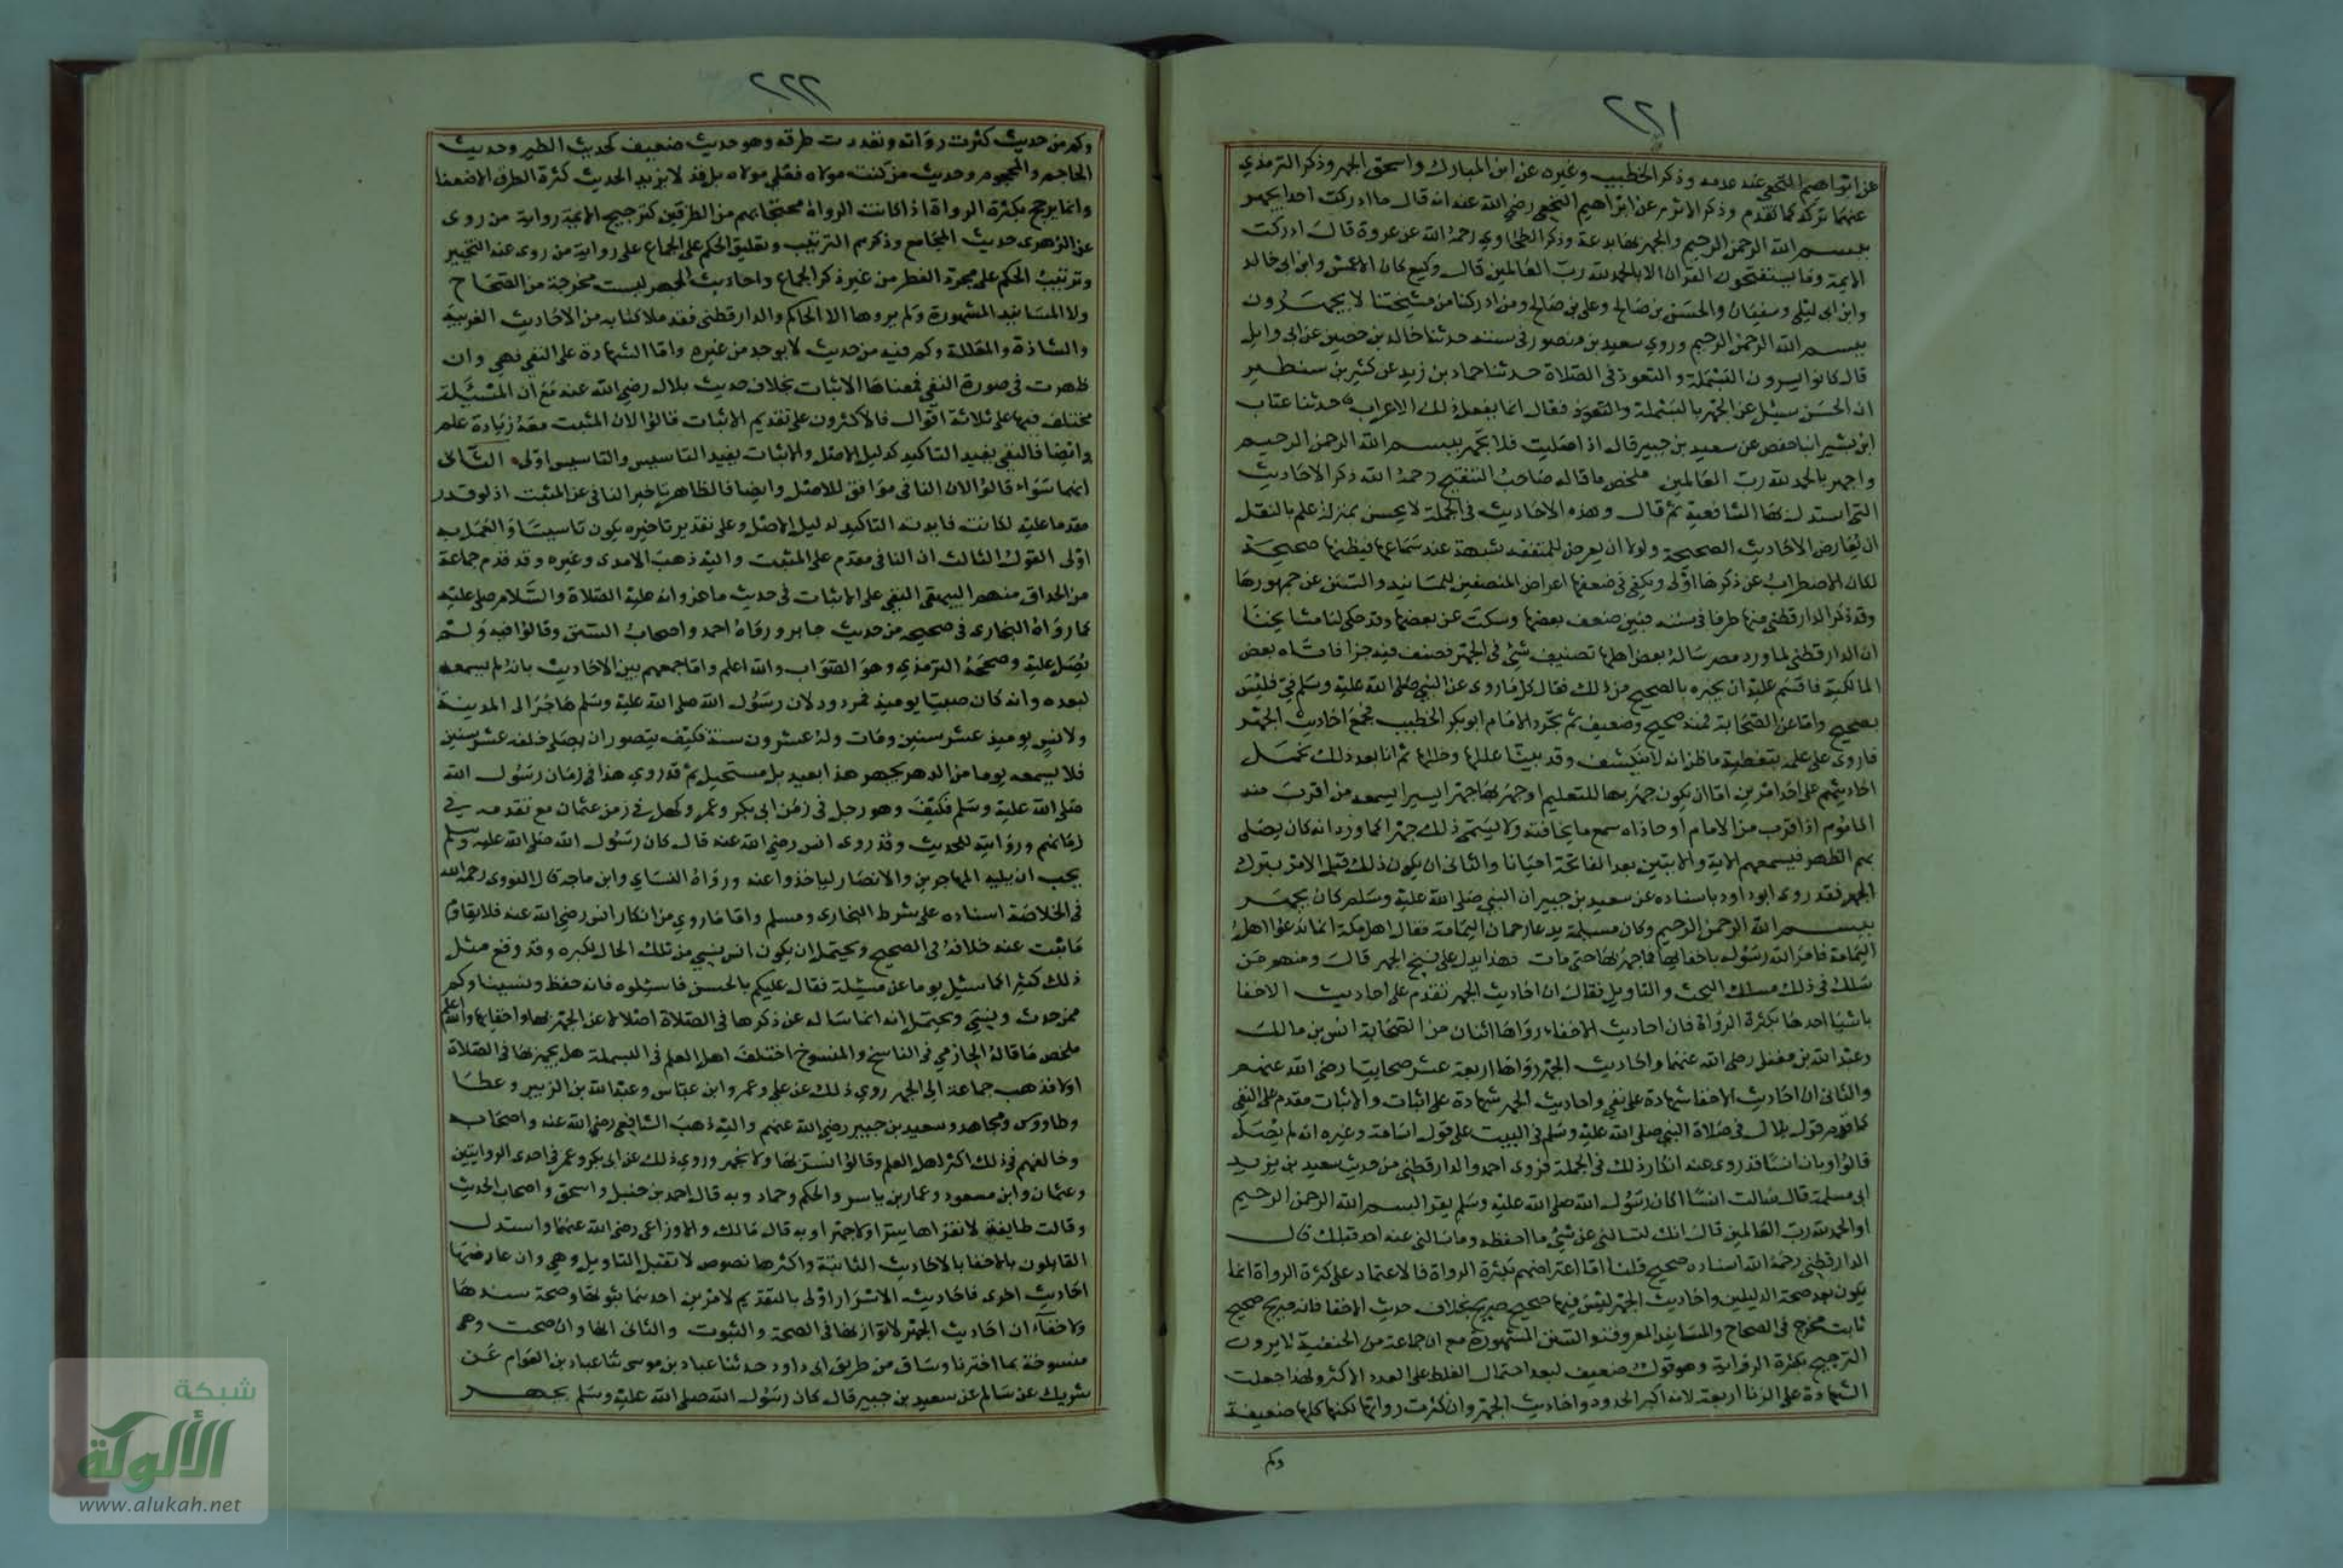 ٢٢١
عن ابراهيم النخعي عنه عدمه وذكر الخطيب وغيره عن ابن المبارك واسحق الجهر وذكر الترمذي
عنهما تركه كما تقدم وذكر الاثرم عن ابراهيم النخعي رضي الله عنه انه قال ما ادركت احدا يجهر
ببسم الله الرحمن الرحيم والجهر بها بدعة وذكر الطحاوي رحمه الله عن عروة قال ادركت
الايمة وما يستفتحون القران الا بالحمد لله رب العالمين قال وكيع كان الاعمش وابن ابي خالد
وابن ابي ليلى وسفيان والحسن بن صالح وعلي بن صالح ومن ادركنا من مشيختنا لا يجهرون
ببسم الله الرحمن الرحيم وروي سعيد بن منصور في سننه حدثنا خالد بن حصين عن ابي وايل
قال كانوا يسرون البسملة والتعوذ في الصلاة حدثنا حماد بن زيد عن كثير بن سنطير
ان الحسن سيل عن الجهر بالبسملة والتعوذ فقال انما يفعل ذلك الاعراب حدثنا عتاب
ابن بشير انبا حفص عن سعيد بن جبير قال اذا صليت فلا تجهر ببسم الله الرحمن الرحيم
واجهر بالحمد لله رب العالمين ملخص ما قاله صاحب التنقيح رحمه الله ذكر الاحاديث
التي استدل بها الشافعية ثم قال وهذه الاحاديث في الجملة لا يحسن بمن له علم بالنقل
ان يعارض الاحاديث الصحيحة ولولا ان يعرض للمتفقه شبهة عند سماعها فيظنها صحيحة
لكان الاضراب عن ذكرها اولى ويكفي في ضعفها اعراض المنصفين للمسانيد والسنن عن جمهورها
وقد ذكر الدارقطني منها طرفا في سننه فبين ضعف بعضها وسكت عن بعضها وقد حكى لنا مشايخنا
ان الدارقطني لما ورد مصر ساله بعض اهلها تصنيف شيء في الجهر فصنف فيه جزا فاتاه بعض
المالكية فاقسم عليه ان يخبره بالصحيح من ذلك فقال كل ما روي عن النبي صلى الله عليه وسلم في فليس
بصحيح واما عن الصحابة فمنه صحيح وضعيف ثم تجرد الامام ابو بكر الخطيب لجمع احاديث الجهر
فاروى على علمه بتغطية ما ظن انه لا ينكشف وقد بينا عللها وخللها ثم انا بعد ذلك نحمل
احاديثهم على احد امرين اما ان يكون جهر بها للتعليم او جهر بها جهرا يسيرا يسمعه من اقرب منه
الماموم اذا اقرب من الامام او حاذاه سمع ما يخافته ولا يسمى ذلك جهرا كما ورد انه كان يصلي
بهم الظهر فيسمعهم الاية والايتين بعد الفاتحة احيانا والثاني ان يكون ذلك قبل الامر بترك
الجهر فقد روى ابو داود باسناده عن سعيد بن جبير ان النبي صلى الله عليه وسلم كان يجهر
ببسم الله الرحمن الرحيم وكان مسيلمة يدعا رحمان اليمامة فقال اهل مكة انما تدعوا اهل
اليمامة فامر الله رسوله باخفايها فما جهر بها حتى مات فهذا يدل على نسخ الجهر قال ومنهم من
سلك في ذلك مسلك البحث والتاويل فقال ان احاديث الجهر تقدم على احاديث الاخفا
باشيا احدها بكثرة الرواة فان احاديث الاخفاء رواها اثنان من الصحابة انس بن مالك
وعبد الله بن مغفل رضي الله عنهما واحاديث الجهر رواها اربعة عشر صحابيا رضي الله عنهم
والثاني ان احاديث الاخفا شهادة على نفي واحاديث الجهر شهادة على اثبات والاثبات مقدم على النفي
كما قدم قول بلال في صلاة النبي صلى الله عليه وسلم في البيت على قول اسامة وغيره انه لم يصل
قالوا وبان انسا قد روي عنه انكار ذلك في الجملة فروى احمد والدارقطني من حديث سعيد بن يزيد
ابي مسلمة قال سالت انسا اكان رسول الله صلى الله عليه وسلم يقرا بسم الله الرحمن الرحيم
او الحمد لله رب العالمين قال انك لتسالني عن شيء ما احفظه وما سالني عنه احد قبلك قال
الدارقطني رحمه الله اسناده صحيح قلنا اما اعتراضهم بكثرة الرواة فالاعتماد على كثرة الرواة انما
يكون بعد صحة الدليلين واحاديث الجهر ليس فيها صحيح صريح بخلاف حديث الاخفا فانه صريح صحيح
ثابت مخرج في الصحاح والمسانيد المعروفة والسنن المشهورة مع ان جماعة من الحنفية لا يرون
الترجيح بكثرة الرواية وهو قول ضعيف لبعد احتمال الغلط على العدد الاكثر ولهذا جعلت
الشهادة على الزنا اربعة لانه اكبر الحدود واحاديث الجهر وان كثرت رواتها لكنها كلها ضعيفة
وكم
٢٢٢
وكم من حديث كثرت رواته وتعددت طرقه وهو حديث ضعيف كحديث الطير وحديث
الحاجم والمحجوم وحديث من كنت مولاه فعلي مولاه بل قد لا يزيد الحديث كثرة الطرق الا ضعفا
وانما يرجح بكثرة الرواة اذا كانت الرواة محتجا بهم من الطرفين كترجيح الايمة رواية من روى
عن الزهري حديث المجامع وذكرهم الترتيب وتعليق الحكم على الجماع على رواية من روى عنه التخيير
وترتيب الحكم على مجرد الفطر من غير ذكر الجماع واحاديث الجهر ليست مخرجة من الصحاح
ولا المسانيد المشهورة ولم يروها الا الحاكم والدارقطني فقد ملا كتابه من الاحاديث الغريبة
والشاذة والمعللة وكم فيه من حديث لا يوجد من غيره واما الشهادة على النفي فهي وان
ظهرت في صورة النفي فمعناها الاثبات بخلاف حديث بلال رضي الله عنه مع ان المسيلة
مختلف فيها على ثلاثة اقوال فالاكثرون على تقديم الاثبات قالوا لان المثبت معه زيادة علم
وايضا فالنفي يفيد التاكيد كدليل الاصل والاثبات يفيد التاسيس والتاسيس اولى الثاني
انهما سواء قالوا لان النافي موافق للاصل وايضا فالظاهر تاخير النافي عن المثبت اذ لو قدر
مقدما عليه لكانت فايدته التاكيد لدليل الاصل وعلى تقدير تاخيره يكون تاسيسا والعمل به
اولى القول الثالث ان النافي مقدم على المثبت واليه ذهب الامدي وغيره وقد قدم جماعة
من الحذاق منهم البيهقي النفي على الاثبات في حديث ماعز وانه عليه الصلاة والسلام صلى عليه
كما رواه البخاري في صحيحه من حديث جابر ورواه احمد واصحاب السنن وقالوا فيه ولم
يصل عليه وصححه الترمذي وهو الصواب والله اعلم واما جمعهم بين الاحاديث بانه لم يسمعه
لبعده وانه كان صبيا يوميذ فمردود لان رسول الله صلى الله عليه وسلم هاجر الى المدينة
ولانس يوميذ عشر سنين ومات وله عشرون سنة فكيف يتصور ان يصلي خلفه عشر سنين
فلا يسمعه يوما من الدهر يجهر هذا بعيد بل مستحيل ثم قد روي هذا في زمان رسول الله
صلى الله عليه وسلم فكيف وهو رجل في زمن ابي بكر وعمر وكهل في زمن عثمان مع تقدمه في
زمانهم وروايته للحديث وقد روى انس رضي الله عنه قال كان رسول الله صلى الله عليه وسلم
يحب ان يليه المهاجرين والانصار لياخذوا عنه ورواه النساي وابن ماجه قال النووي رحمه الله
في الخلاصة اسناده على شرط البخاري ومسلم واما ما روي من انكار انس رضي الله عنه فلا يقاوم
ما ثبت عنه خلافه في الصحيح ويحتمل ان يكون انس نسي من تلك الحال لكبره وقد وقع مثل
ذلك كثيرا كما سيل يوما عن مسيلة فقال عليكم بالحسن فاسيلوه فانه حفظ ونسينا وكم
ممن حدث ونسي ويحتمل انه انما ساله عن ذكرها في الصلاة اصلا لا عن الجهر بها واخفايها والله اعلم
ملخص ما قاله الحازمي في الناسخ والمنسوخ اختلف اهل العلم في البسملة هل يجهر بها في الصلاة
اولا فذهب جماعة الى الجهر روي ذلك عن علي وعمر وابن عباس وعبد الله بن الزبير وعطا
وطاووس ومجاهد وسعيد بن جبير رضي الله عنهم واليه ذهب الشافعي رضي الله عنه واصحابه
وخالفهم في ذلك اكثر اهل العلم وقالوا نسر بها ولا نجهر وروي ذلك عن ابي بكر وعمر في احدى الروايتين
وعثمان وابن مسعود وعمار بن ياسر والحكم وحماد وبه قال احمد بن حنبل واسحق واصحاب الحديث
وقالت طايفة لا نقراها سرا ولا جهرا وبه قال مالك والاوزاعي رضي الله عنهما واستدل
القايلون بالاخفا بالاحاديث الثابتة واكثرها نصوص لا تقبل التاويل وهي وان عارضتها
احاديث اخرى فاحاديث الاسرار اولى بالتقديم لامرين احدهما ثبوتها وصحة سندها
ولا خفاء ان احاديث الجهر لا توازيها في الصحة والثبوت والثاني انها وان صحت وهي
منسوخة بما اخبرنا وساق من طريق ابي داود حدثنا عباد بن موسى ثنا عباد بن العوام عن
شريك عن سالم عن سعيد بن جبير قال كان رسول الله صلى الله عليه وسلم يجهر
شبكة
الألوكة
www.alukah.net